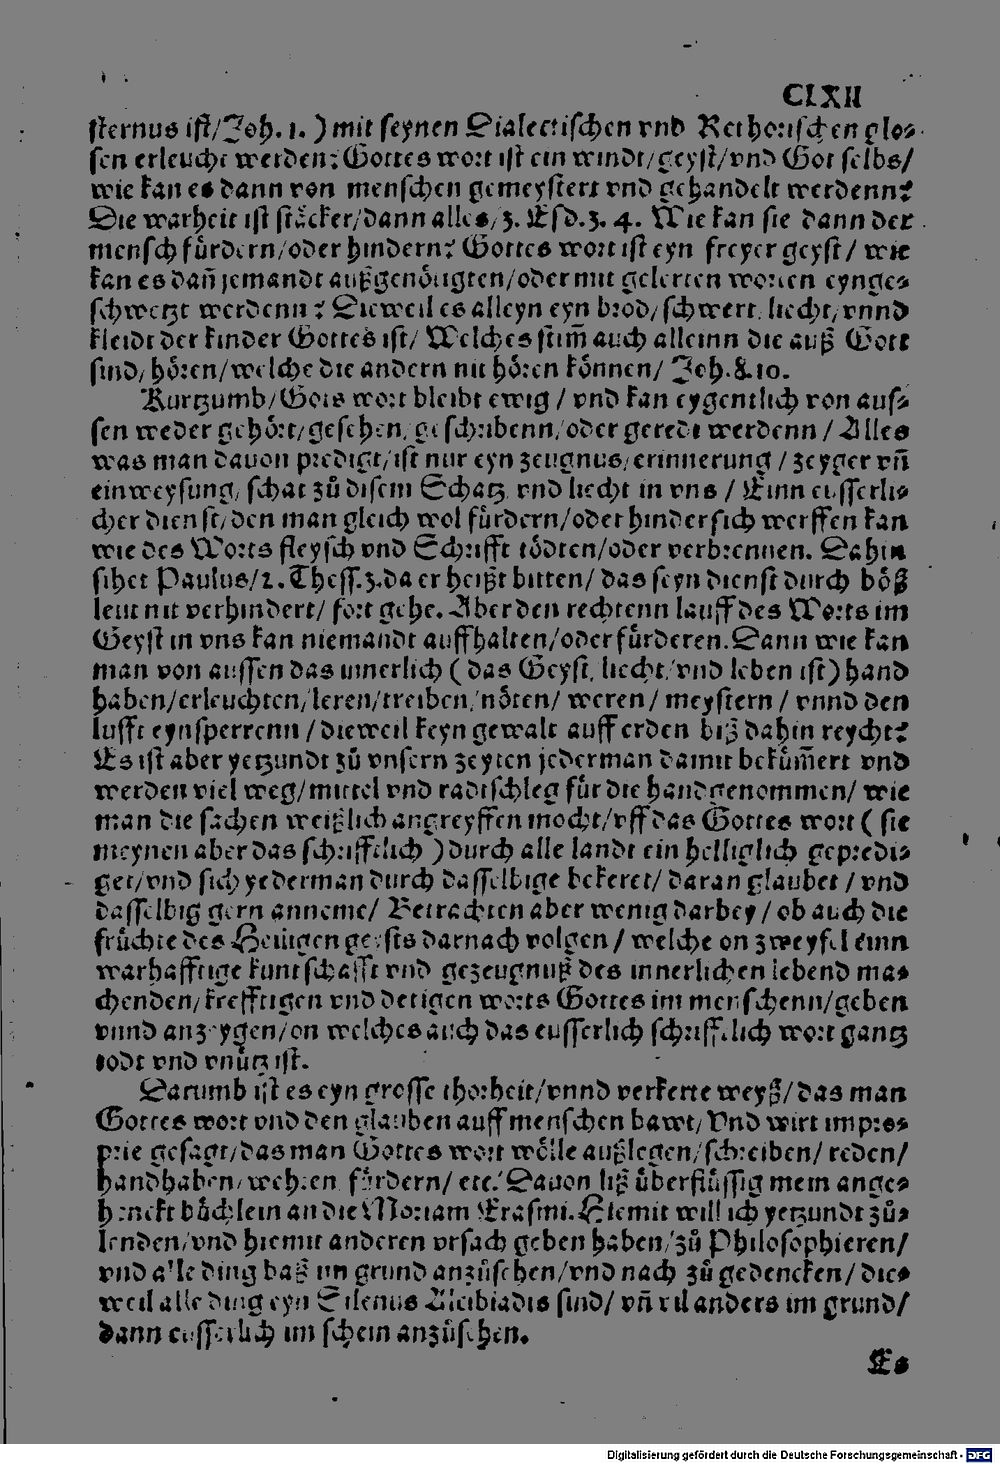 CLXII
sternus ist/Joh. 1. ) mit seynen Dialectischen vnd Rethorischen glo⸗
sen erleucht werden? Gottes wort ist ein windt/geyst/vnd Got selbs/
wie kan es dann von menschen gemeystert vnd gehandelt werdenn?
Die warheit ist stäcker/dann alles/3. Esd. 3. 4. Wie kan sie dann der
mensch fürdern/oder hindern? Gottes wort ist eyn freyer geyst/ wie
kan es dañ jemandt außgenötigten/oder mit gelerten worten eynge⸗
schwetzt werdenn? Dieweil es alleyn eyn brod/ schwert, liecht/ vnnd
kleidt der kinder Gottes ist/ Welches stim̄ auch alleinn die auß Gott
sind/ hören/welche die andern nit hören können/ Joh. 8. 10.
Kurtzumb/Gots wort bleibt ewig / vnd kan eygentlich von aus⸗
sen weder gehört/gesehen/ geschribenn/oder geredt werdenn / Alles
was man dauon predigt/ist nur eyn zeugnus/erinnerung / zeyger vñ
einweysung/ schat zů disem Schatz vnd liecht in vns / Einn eusserli⸗
cher dienst/den man gleich wol fürdern/oder hindersich werffen kan
wie des Worts fleysch vnd Schrifft tödten/oder verbrennen. Dahin
sihet Paulus/2. Thess. 3. da er heißt bitten/ das seyn dienst durch böß
leut nit verhindert/ fort gehe. Aber den rechtenn lauff des Worts im
Geyst in vns kan niemandt auffhalten/oder fürderen. Dann wie kan
man von aussen das innerlich ( das Geyst, liecht/ vnd leben ist) hand
haben/erleuchten/leren/treiben/nöten/ weren / meystern / vnnd den
lufft eynsperrenn / dieweil keyn gewalt auff erden biß dahin reycht?
Es ist aber yetzundt zů vnsern zeyten jederman damit beküm̄ert vnd
werden viel weg/ mittel vnd radtschleg für die handgenommen/ wie
man die sachen weißlich angreyffen möcht/vff das Gottes wort ( sie
meynen aber das schrifftlich ) durch alle landt ein helliglich gepredi⸗
get/vnd sich yederman durch dasselbige bekeret/ daran glaubet / vnd
dasselbig gern anneme/ Betrachten aber wenig darbey / ob auch die
früchte des Heiligen geysts darnach volgen / welche on zweyfel einn
warhafftige kuntschafft vnd gezeugnuß des innerlichen lebend ma⸗
chenden/krefftigen vnd detigen worts Gottes im menschenn/geben
vnnd anzeygen/on welches auch das eusserlich schrifftlich wort gantz
todt vnd vnütz ist.
Darumb ist es eyn grosse thorheit/vnnd verkerte weyß/das man
Gottes wort vnd den glauben auff menschen bawt/ Vnd wirt impro⸗
prie gesagt/das man Gottes wort wölle außlegen/schreiben/ reden/
handhaben/ wehren fürdern/ etc. Dauon liß überflüssig mein ange⸗
henckt büchlein an die Moriam Erasmi. Hiemit will ich yetzundt zů⸗
lenden/vnd hiemit anderen vrsach geben haben/zů Philosophieren/
vnd alle ding baß im grund anzůsehen/vnd nach zů gedencken/ die⸗
weil alle ding eyn Silenus Alcibiadis sind/ vñ vil anders im grund/
dann eusserlich im schein anzůsehen.
Es
Digitalisierung gefördert durch die Deutsche Forschungsgemeinschaft - DFG